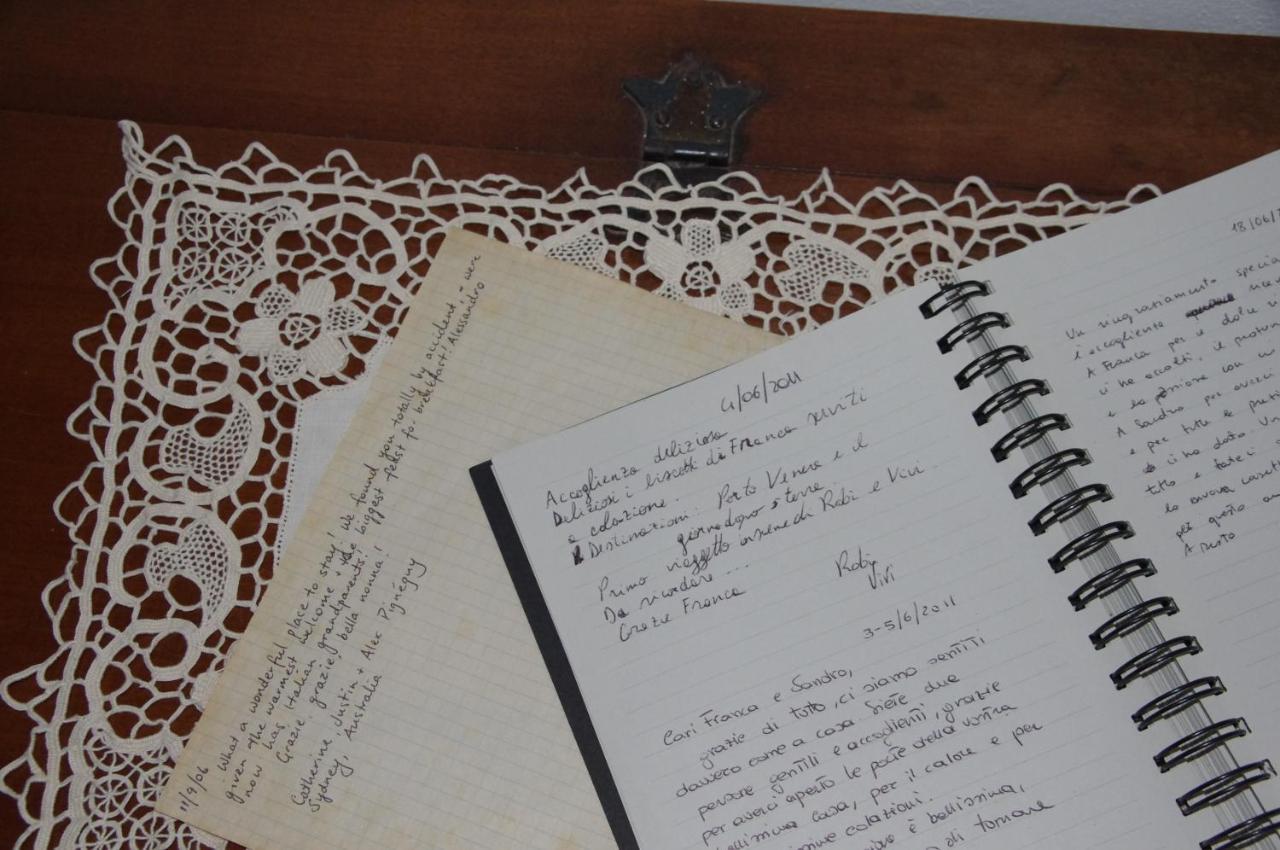 11/9/06
What a wonderful place to stay! We found you totally by accident - were
given the warmest welcome + the biggest feast for breakfast! Alessandro
now has Italian grandparents!
Grazie, grazie, bella nonna!
Catherine, Justin + Alec Pignéguy
Sydney, Australia
4/06/2011
Accoglienza deliziosa
Deliziosi i biscotti di Franca serviti
a colazione.
Destinazioni: Porto Venere e il
giorno dopo 5 terre.
Primo viaggetto insieme di Robi e Vivi.
Da ricordare...
Grazie Franca
Robi
Vivi
3-5/6/2011
Cari Franca e Sandro,
grazie di tutto, ci siamo sentiti
davvero come a casa. Siete due
persone gentili e accoglienti, grazie
per averci aperto le porte della vostra
bellissima casa, per il calore e per
colazioni.
è bellissima,
di tornare
18/06/
Un ringraziamento specia
è accogliente
A Franca per il dolce
ci ha accolti, il
e la passione con
A Sandro per averci
e per tutte le
ci ha dato.
tutto e
la nuova
per questo
A presto